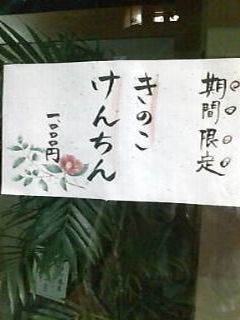 期間限定
きのこ
けんちん
一、〇〇〇円